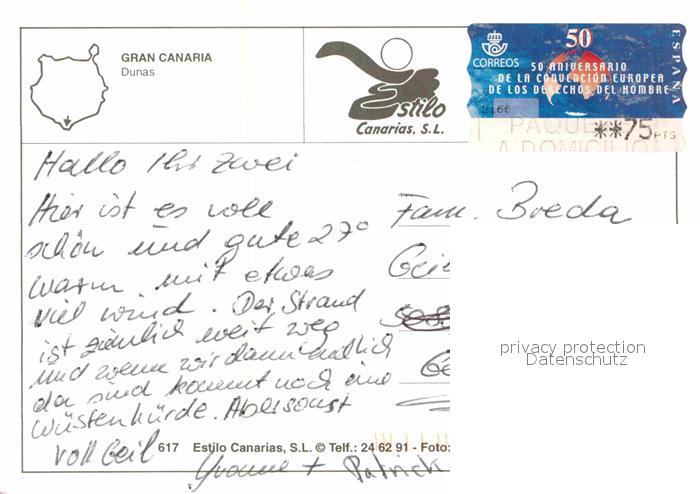 GRAN CANARIA
Dunas
Estilo
Canarias, S.L.
CORREOS
50
ESPAÑA
50 ANIVERSARIO
DE LA CONVENCIÓN EUROPEA
DE LOS DERECHOS DEL HOMBRE
2166
PAQUE
**75 PTS
A DOMICILIO
Hallo Ihr zwei
Hier ist es voll
schön und gute 27°
warm mit etwas
viel wind. Der Strand
ist ziemlich weit weg
und wenn wir dann endlich
da sind kommt noch eine
Wüstenhürde. Aber sonst
voll Geil
Yvonne + Patrick
Fam. Breda
privacy protection
Datenschutz
617 Estilo Canarias, S.L. © Telf.: 24 62 91 - Foto: